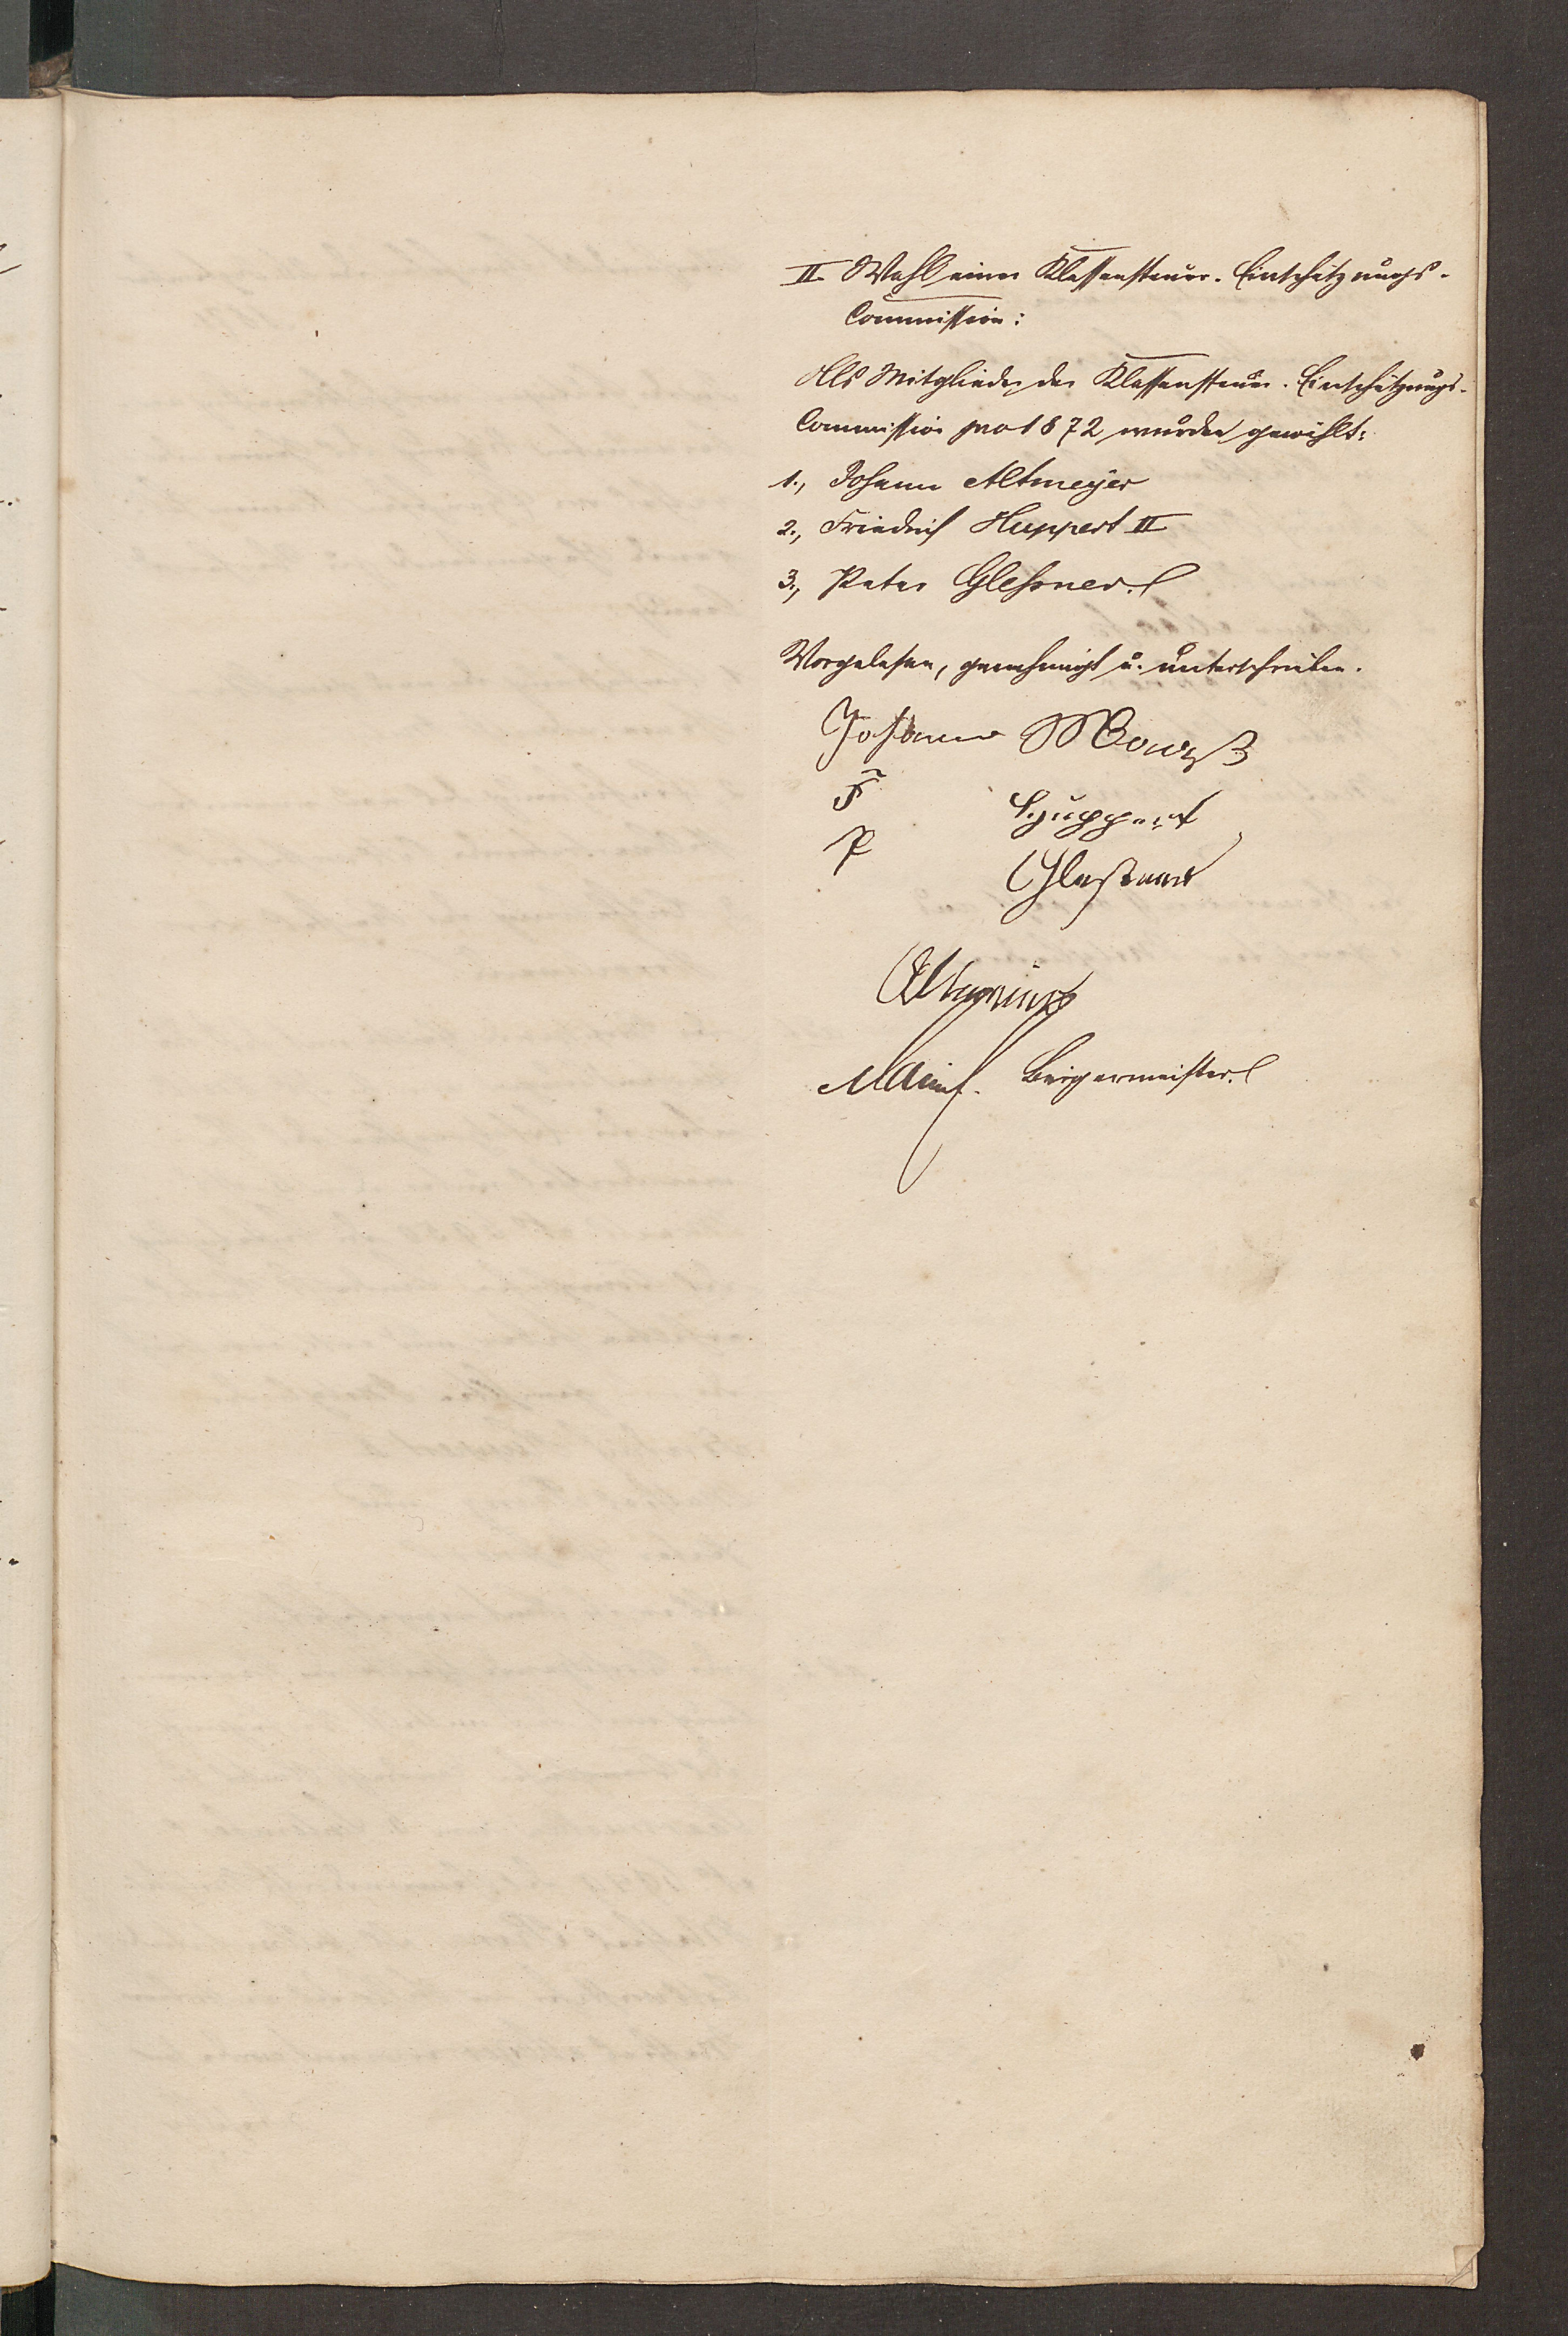 II. Wahl einer Klassensteuer-Einschätzungs-
Commission:
Als Mitglieder der Klassensteuer-Einschätzungs-
Commission pro 1872 wurden gewählt:
1., Johann Altmeyer
2., Friedrich Huppert II
3., Peter Gleßner.
Vorgelesen, genehmigt u. unterschrieben.
Johann
F Huppert
P Gleßner
Altmeier
Bürgermeister.